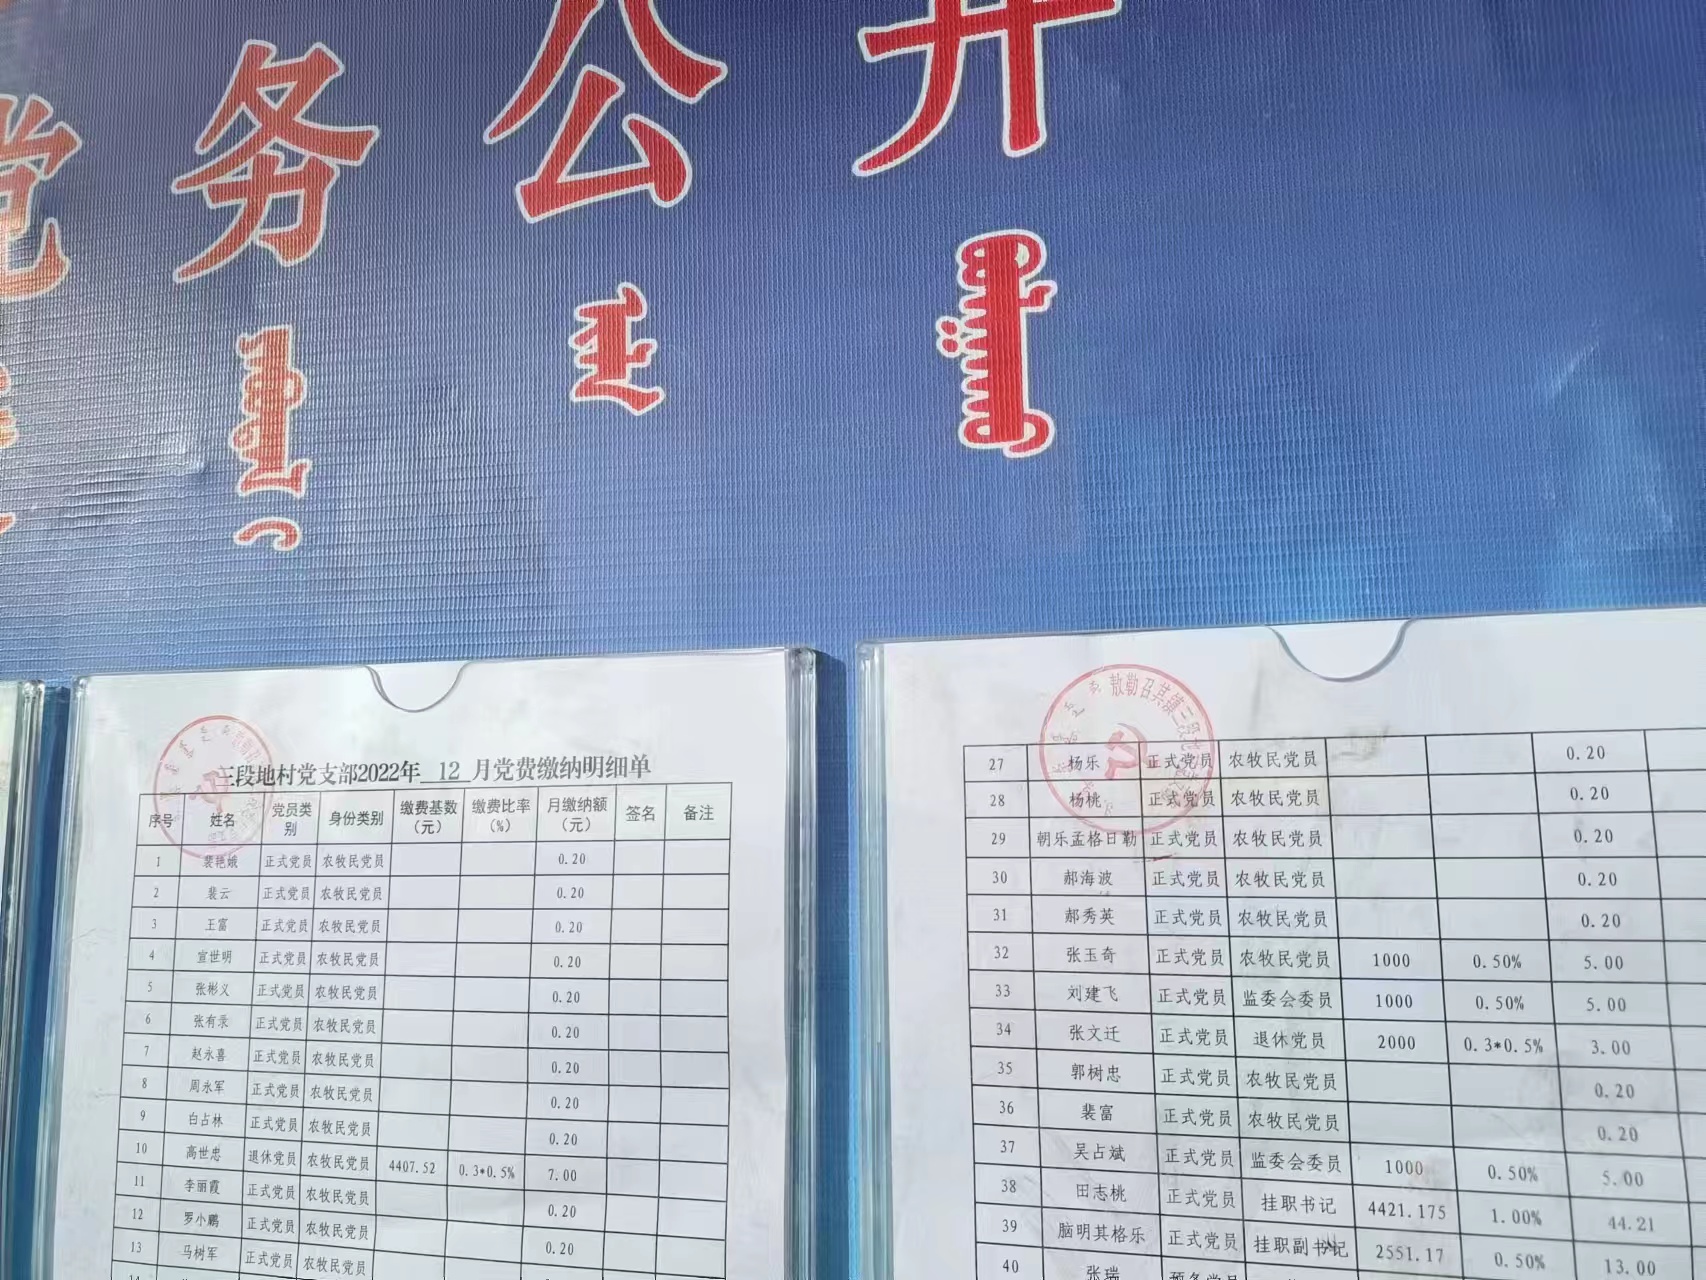 党务公开
三段地村党支部2022年 12 月党费缴纳明细单
序号 姓名 党员类别 身份类别 缴费基数（元） 缴费比率（%） 月缴纳额（元） 签名 备注
1 裴艳娥 正式党员 农牧民党员 0.20
2 裴云 正式党员 农牧民党员 0.20
3 王富 正式党员 农牧民党员 0.20
4 宣世明 正式党员 农牧民党员 0.20
5 张彬义 正式党员 农牧民党员 0.20
6 张有录 正式党员 农牧民党员 0.20
7 赵永喜 正式党员 农牧民党员 0.20
8 周永军 正式党员 农牧民党员 0.20
9 白占林 正式党员 农牧民党员 0.20
10 高世忠 退休党员 农牧民党员 4407.52 0.3*0.5% 7.00
11 李丽霞 正式党员 农牧民党员 0.20
12 罗小鹏 正式党员 农牧民党员 0.20
13 马树军 正式党员 农牧民党员
敖勒召其镇三段地
27 杨乐 正式党员 农牧民党员 0.20
28 杨桃 正式党员 农牧民党员 0.20
29 朝乐孟格日勒 正式党员 农牧民党员 0.20
30 郝海波 正式党员 农牧民党员 0.20
31 郝秀英 正式党员 农牧民党员 0.20
32 张玉奇 正式党员 农牧民党员 1000 0.50% 5.00
33 刘建飞 正式党员 监委会委员 1000 0.50% 5.00
34 张文迁 正式党员 退休党员 2000 0.3*0.5% 3.00
35 郭树忠 正式党员 农牧民党员 0.20
36 裴富 正式党员 农牧民党员 0.20
37 吴占斌 正式党员 监委会委员 1000 0.50% 5.00
38 田志桃 正式党员 挂职书记 4421.175 1.00% 44.21
39 脑明其格乐 正式党员 挂职副书记 2551.17 0.50% 13.00
40 张瑞